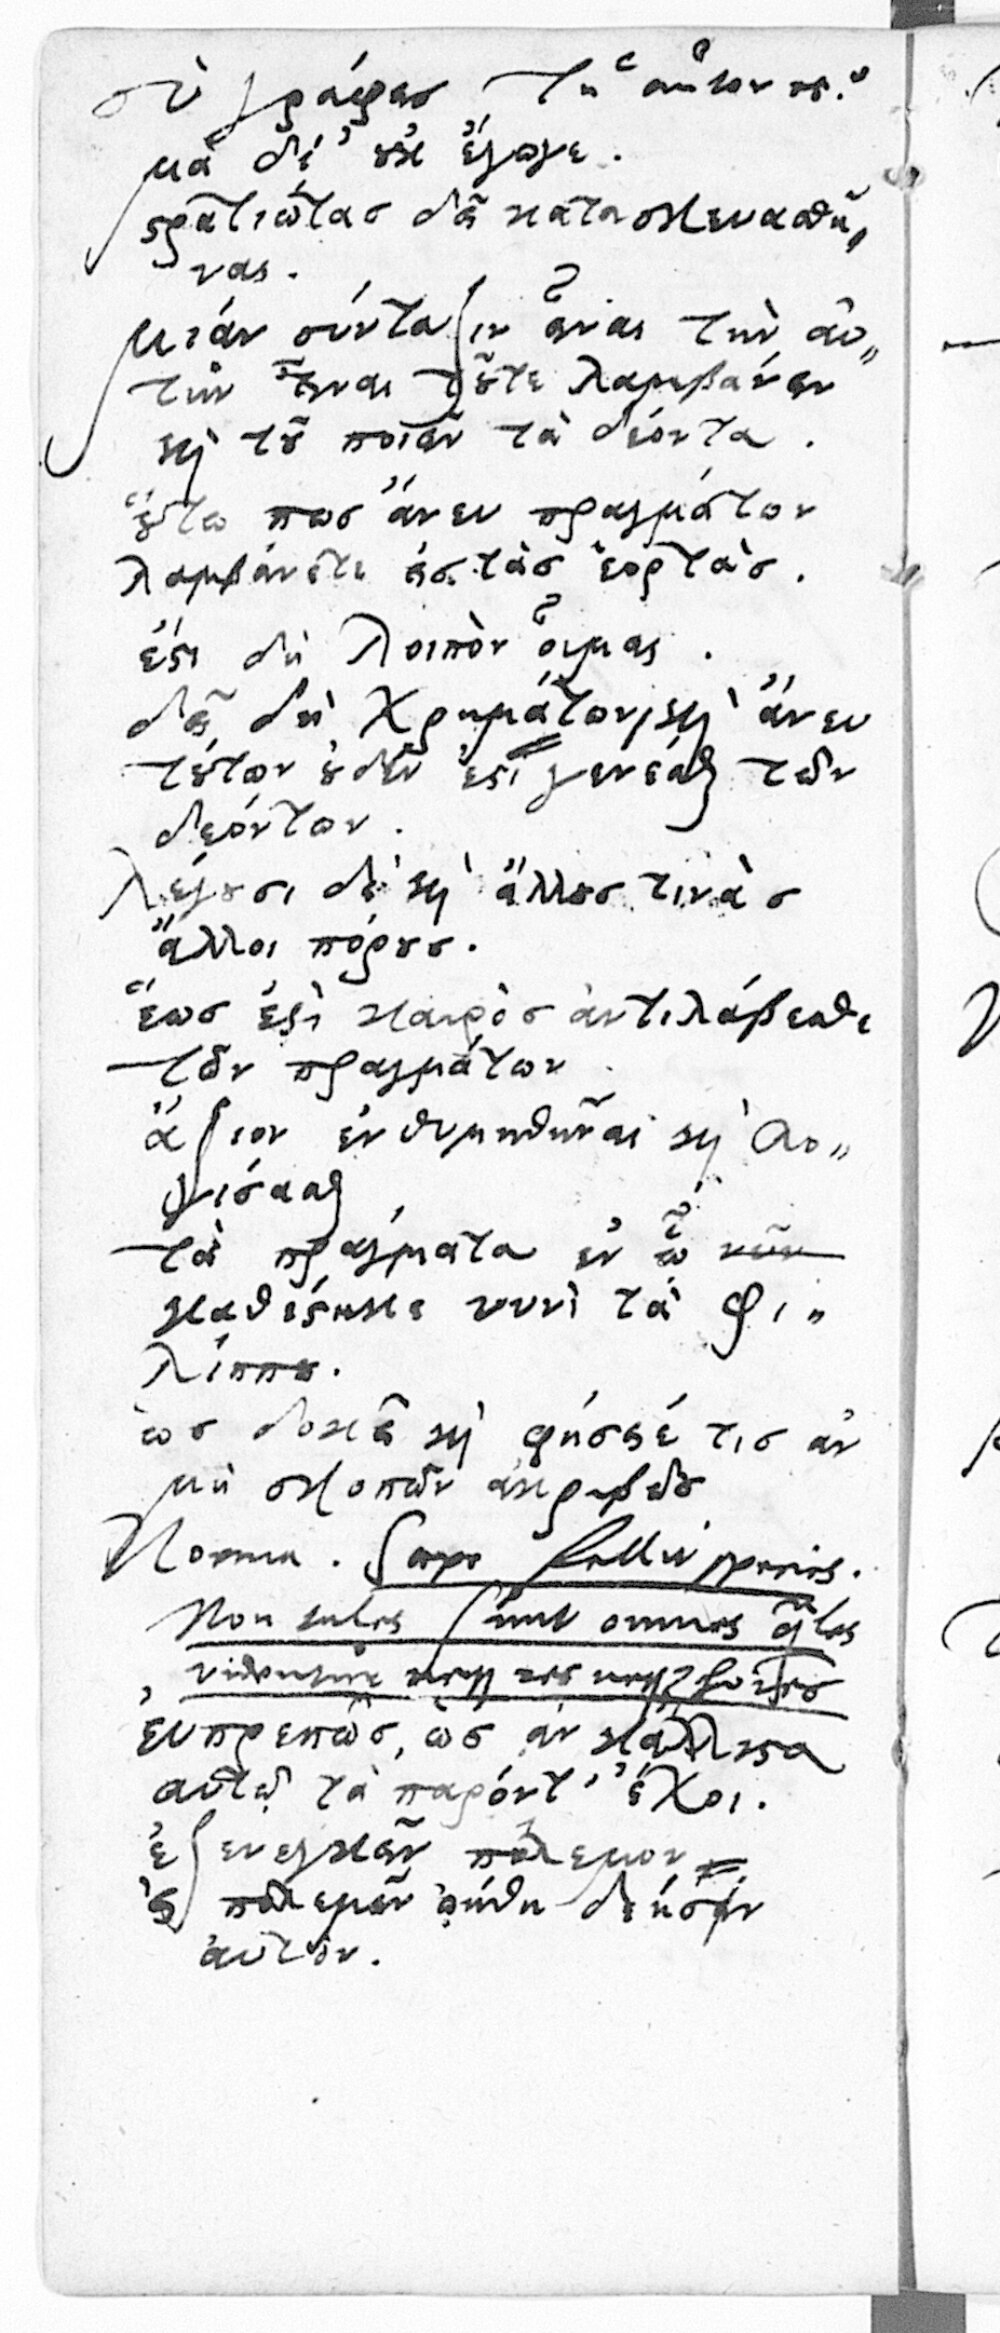 σὺ γράφεις
μὰ δί' οὐκ ἔγωγε.
στρατιώτας δεῖ κατασκευασθῆ„
ναι.
μιάν σύνταξιν εἶναι τὴν αὐ„
τὴν τοῦτε λαμβάνειν
καὶ τοῦ ποιεῖν τὰ δέοντα.
οὕτω πως ἄνευ πραγμάτων
λαμβάνετε εἰς τὰς ἑορτὰς.
ἔστι δὴ λοιπὸν οἶμαι.
δεῖ δὴ χρημάτων, καὶ ἄνευ
τούτων οὐδὲν ἐστὶ γενέσθαι τῶν
δεόντων.
λέγουσι δὲ καὶ ἄλλους τινὰς
ἄλλοι πόρους.
ἕως ἐστὶ καιρὸς ἀντιλάβεσθε
τῶν πραγμάτων.
ἄξιον ἐνθυμηθῆναι καὶ λο„
γίσασθαι
τὰ πράγματα ἐν ᾧ νῦν
καθέστηκε νυνὶ τὰ φι„
λίππου.
ὡς δοκεῖ καὶ φήσειέ τις ἂν
μὴ σκοπῶν ἀκριβῶς
Norma. Saepe fallit species.
Non tales sunt omnes q̃les
videntur neq̃ res neq̃ hoĩes
εὐπρεπῶς, ὡς ἂν κάλλιστα
αὐτῷ τὰ παρόντ' ἔχοι.
ἐξενεγκεῖν πόλεμον
πολεμεῖν ᾠήθη δεήσειν
αὐτὸν.